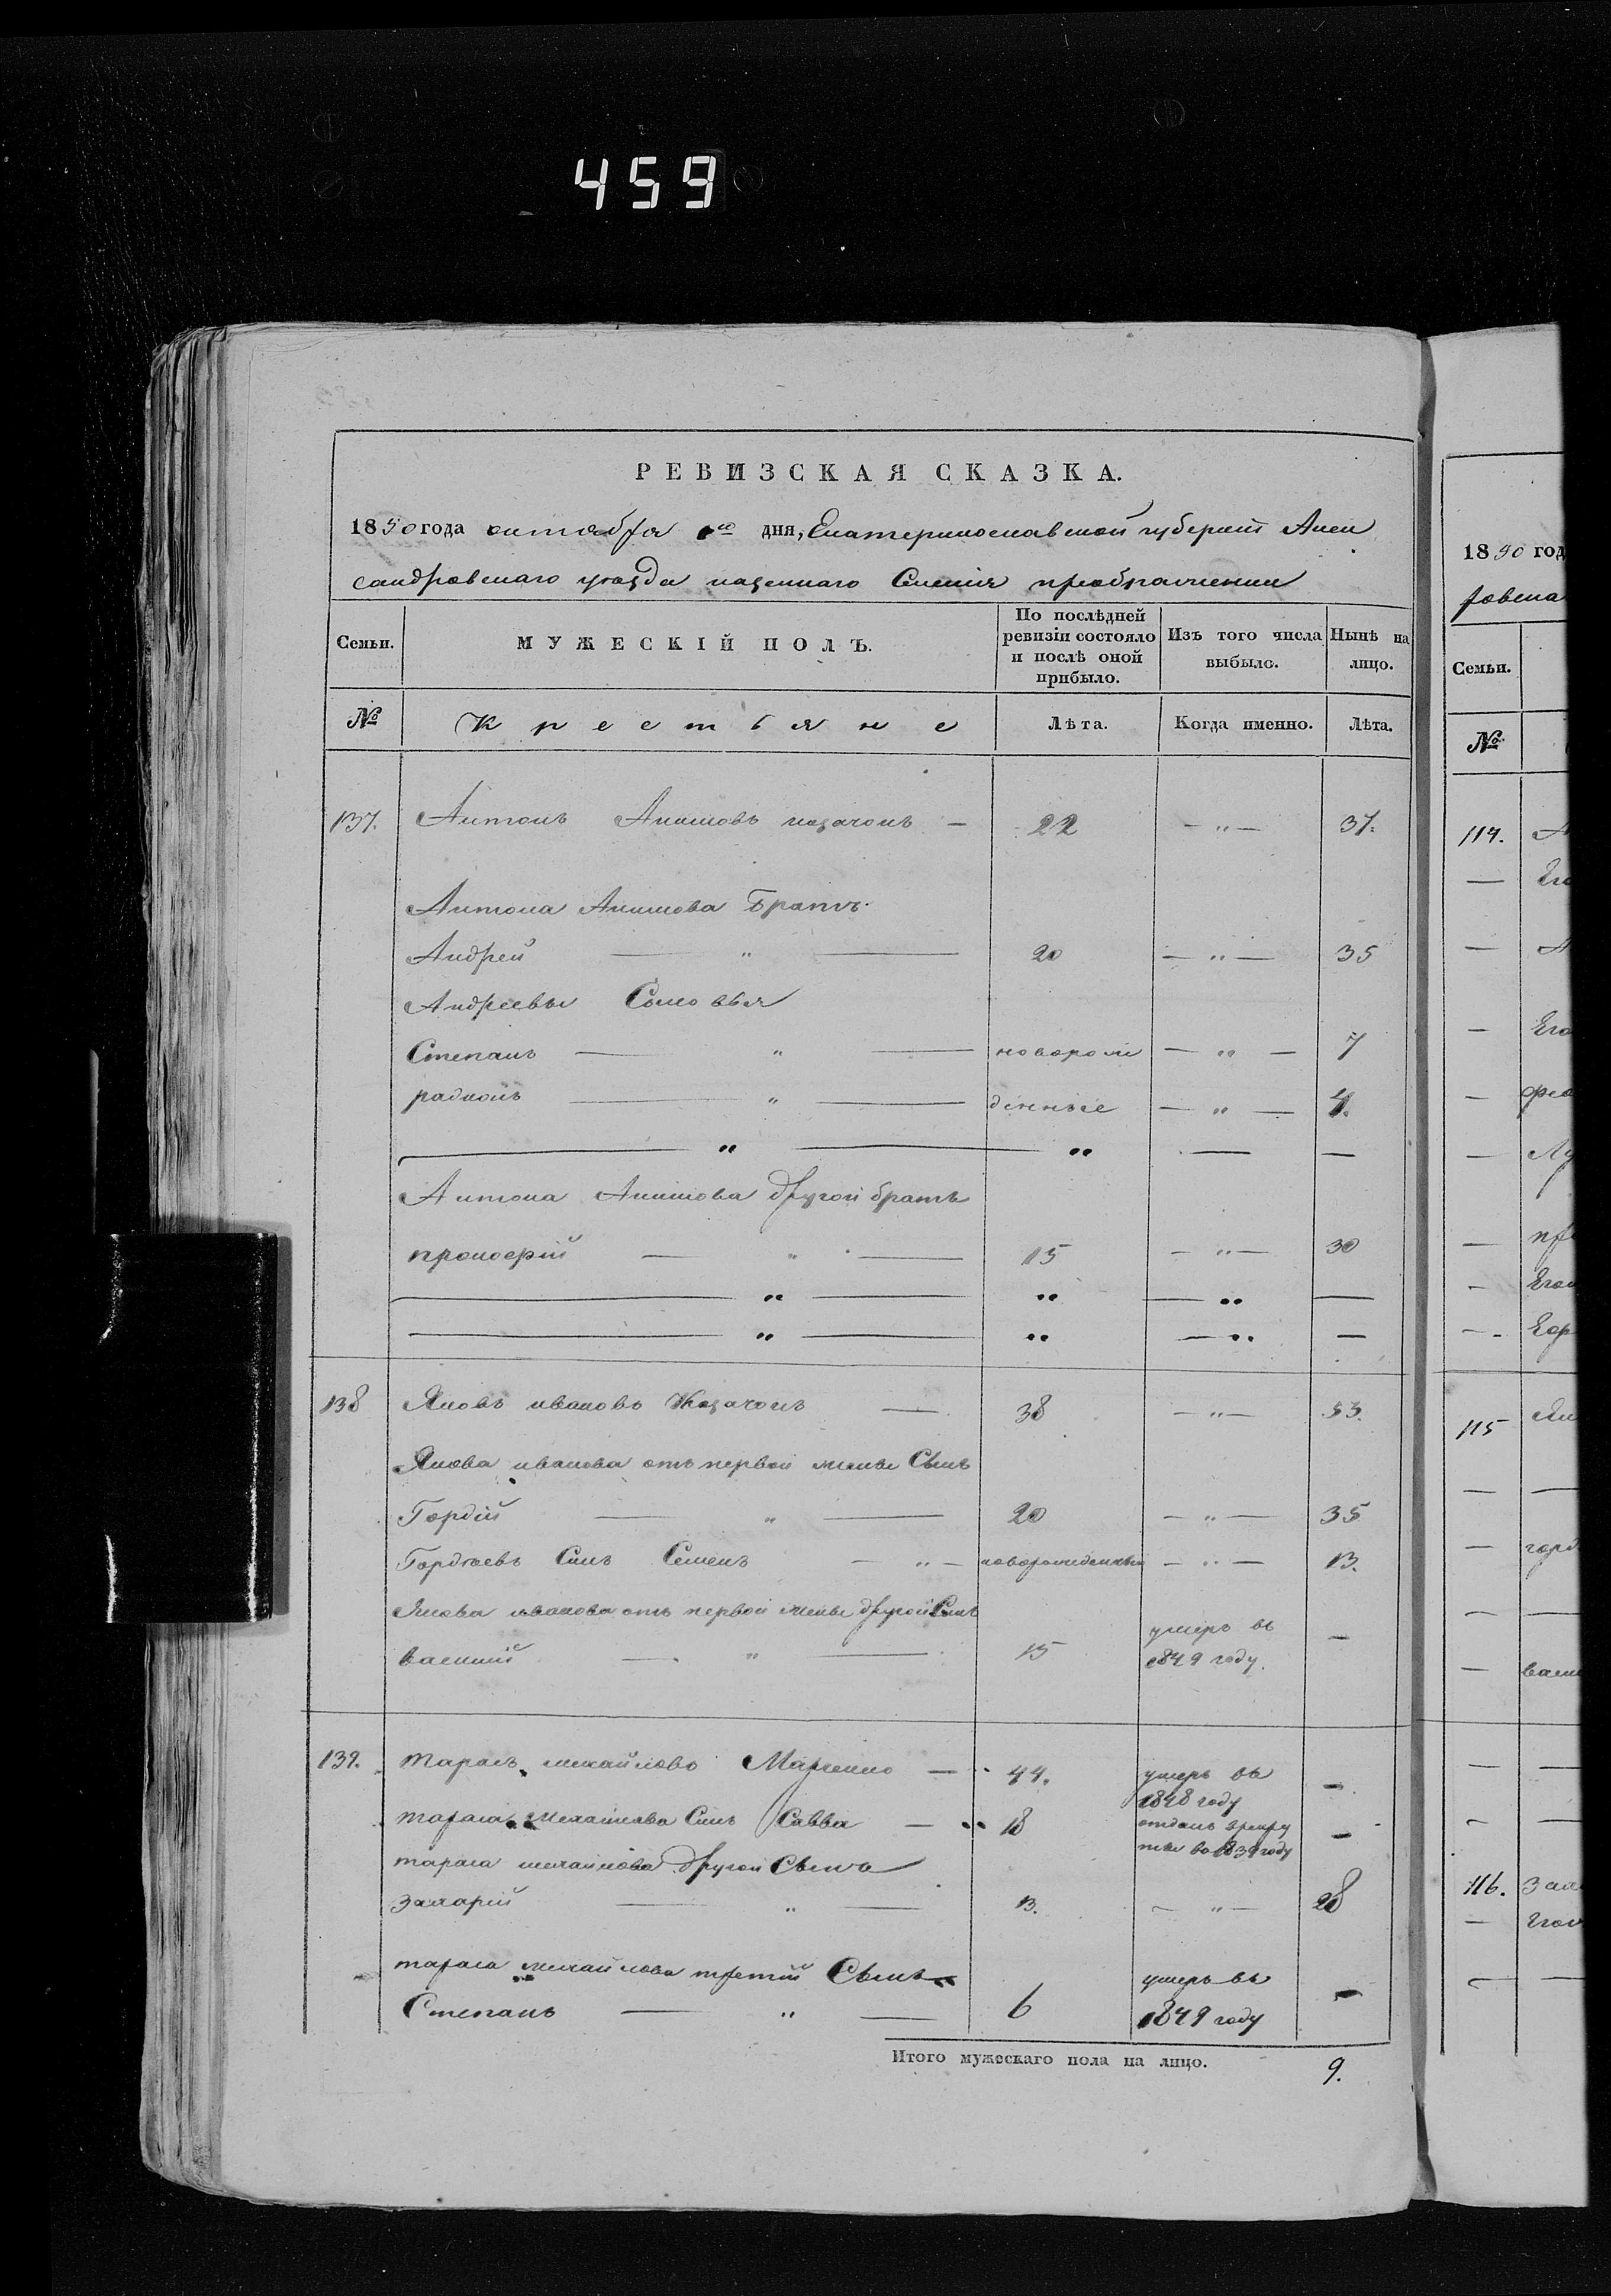 459
РЕВИЗСКАЯ СКАЗКА.
1850 года октября 1го дня, Екатеринославской губерніи Алек
сандровскаго уезда казеннаго Селенія преображенки
Семьи. МУЖЕСКІЙ ПОЛЪ. По послѣдней ревизіи состояло и послѣ оной прибыло. Изъ того числа выбыло. Нынѣ на лицо.
№ Крестьяне Лѣта. Когда именно. Лѣта.
137. Антонъ Акимовъ казачокъ — 22 — " — 37.
Антона Акимова Братъ.
Андрей — " — 20 — " — 35
Андреевы Сыновья
Степанъ — " — новорож — " — 7
радионъ — " — денные — " — 4.
— " — " — —
Антона Акимова другой братъ
прокофій — " — 15 — " — 30
— " — " — " — —
— " — " — " — —
138 Яковъ ивановъ Казачокъ — 38 — " — 53.
Якова иванова отъ первой жены Сынъ
Гордій — " — 20 — " — 35
Гордѣевъ Сынъ Семенъ — " — новорожденный — " — 13.
Якова иванова отъ первой жены другой Сынъ
василий — " — 15 умеръ въ 1849 году. —
139. тарасъ михайловъ Марченко — 44. умеръ въ 1848 году —
тараса михайлова Сынъ Савва — 18 отданъ врекру ты во 1839 году —
тараса михайлова другой Сынъ
захарій — " — 13. — " — 28
тараса михайлова третій Сынъ
Степанъ — " — 6 умеръ въ 1849 году —
Итого мужескаго пола на лицо. 9.
1850 год
ровска
Семьи.
№
114. А
— Его
— А
— Его
— фео
— Лу
— пр
— Его
— Еф
115 Як
— —
— горд
— —
— васи
— —
— —
116. Зах
— Его
— —